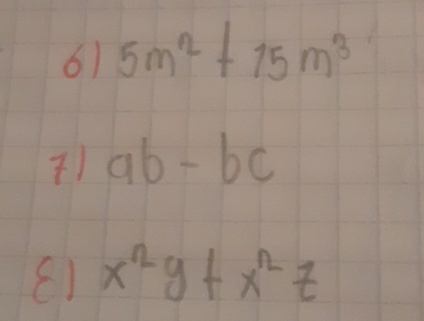 6) 5m² + 15m³
7) ab - bc
8) x²y + x²z